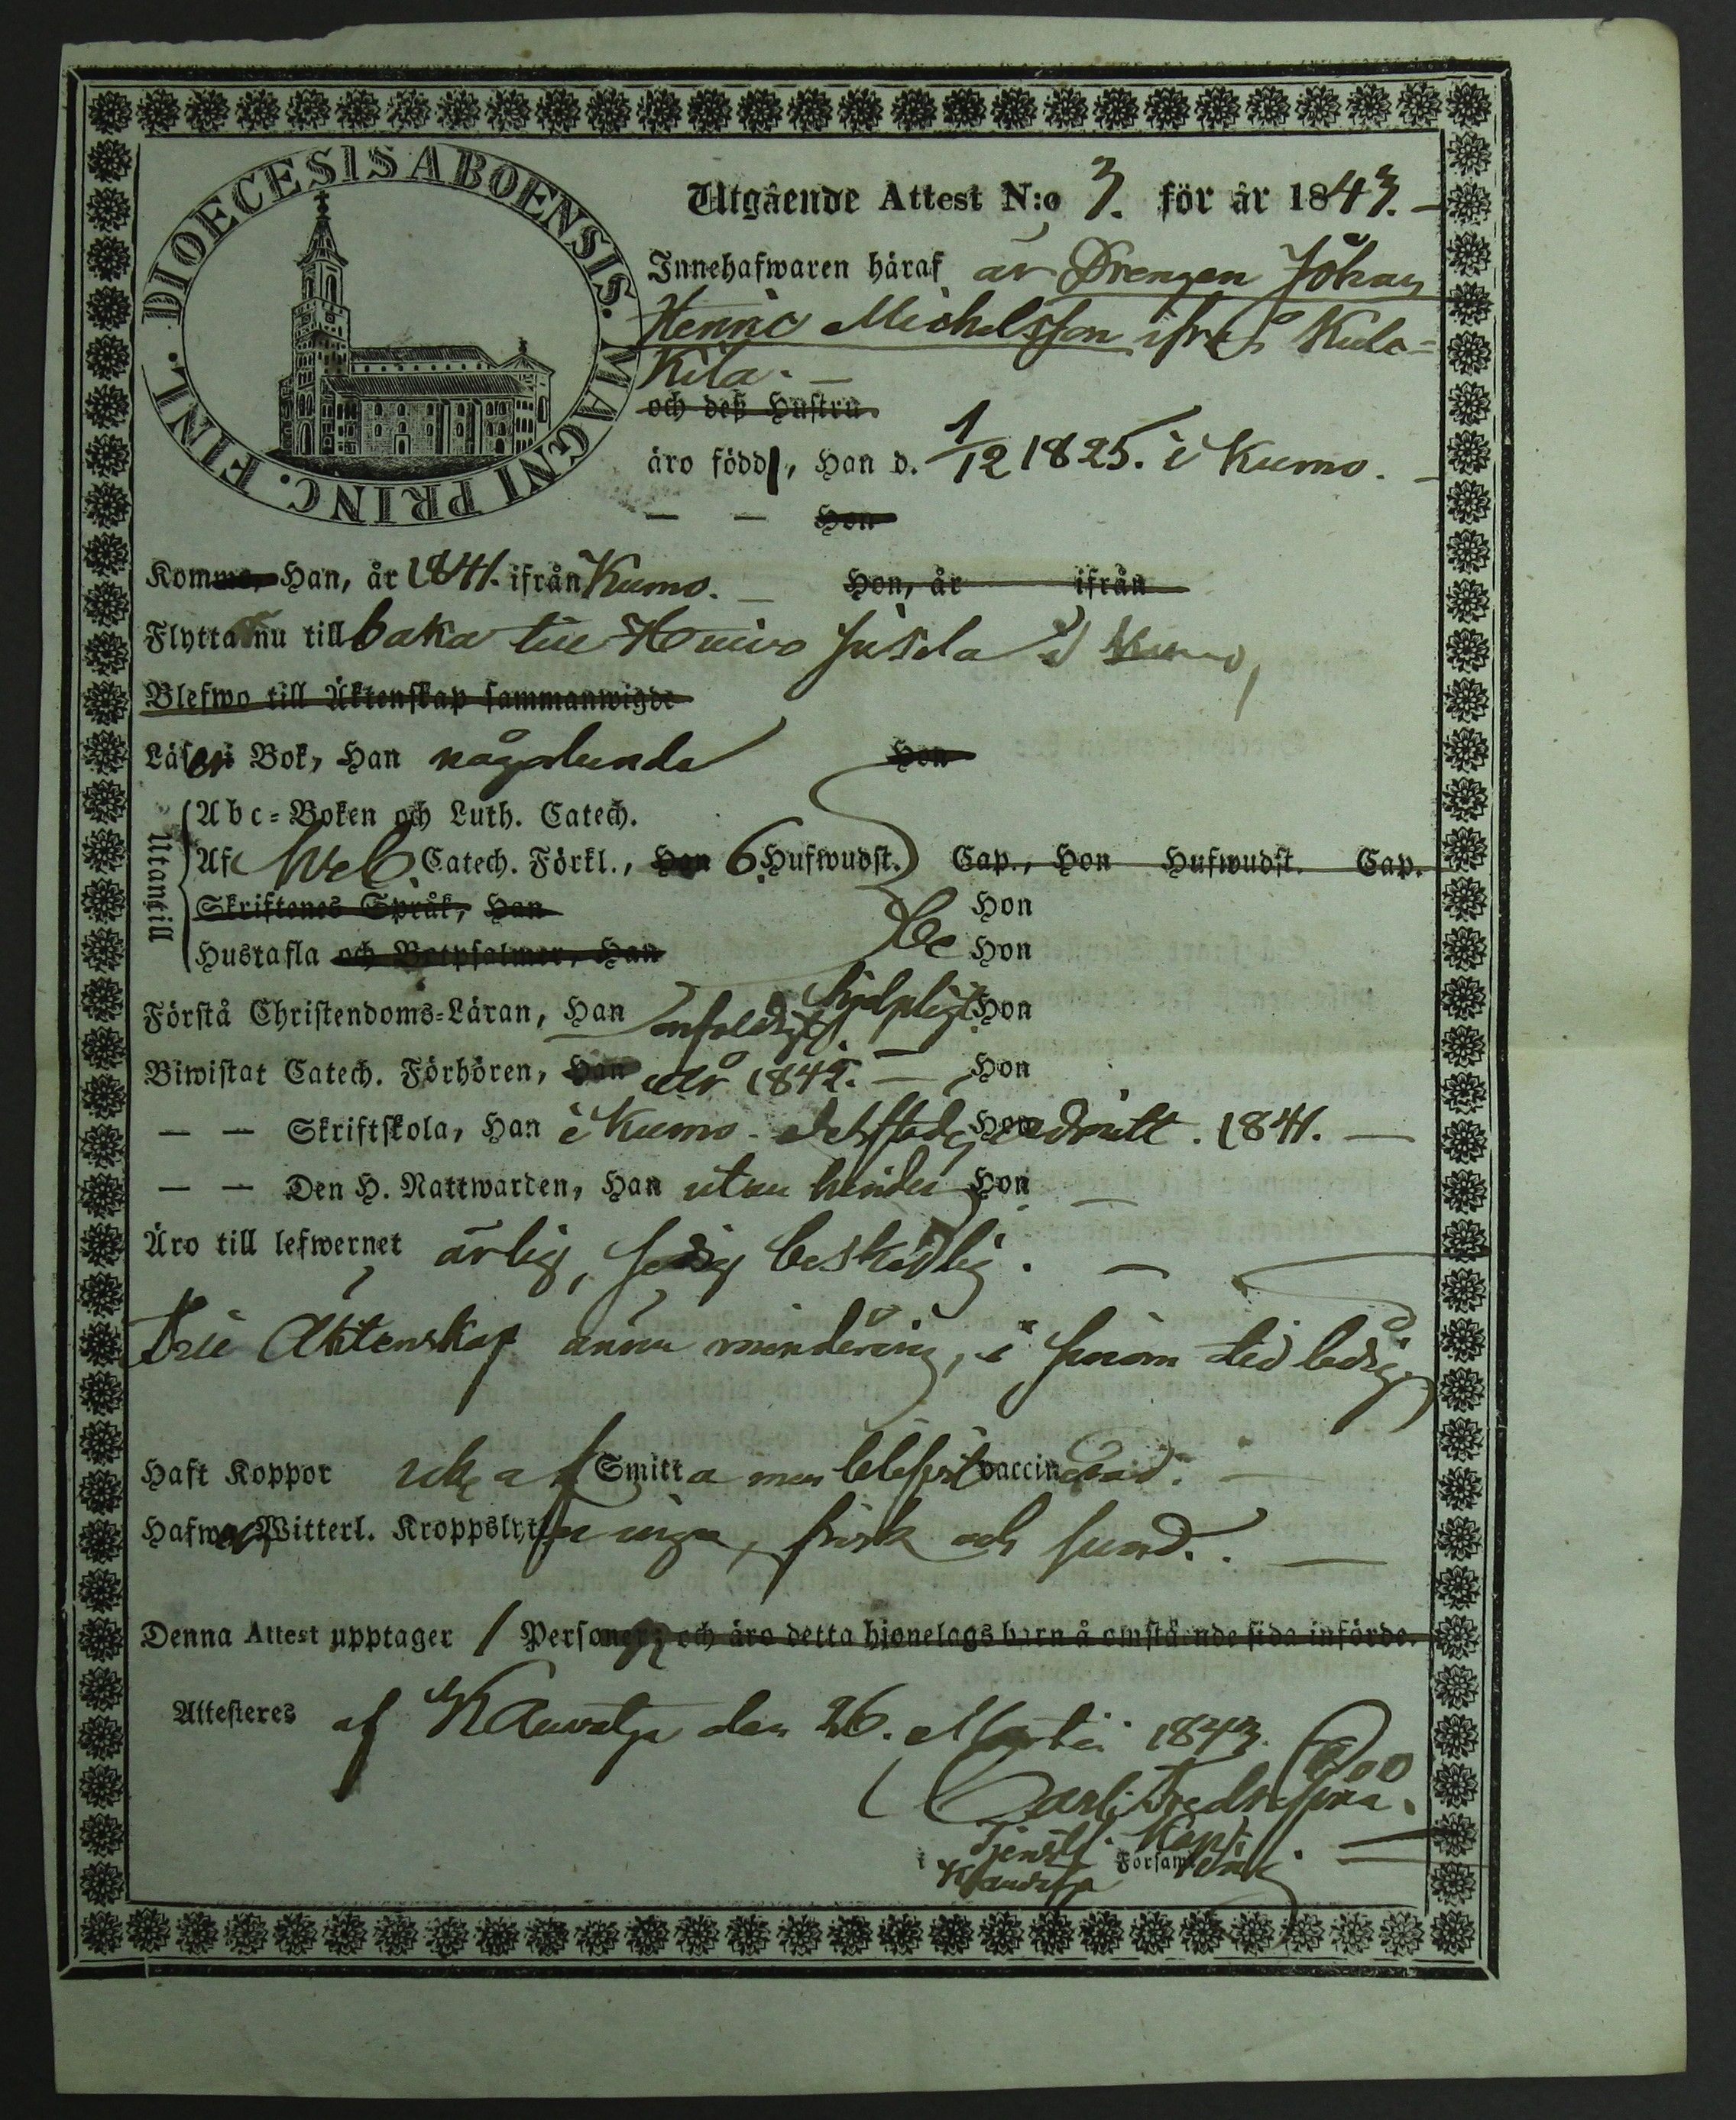 DIOECESIS ABOENSIS. MAGNI PRINC. FINL.
Utgående Attest N:o 3. för år 1843.
Innehafwaren häraf är Drengen Johan
Henric Michelsson ifrån Kula=
Kila.
och deß Hustru
äro född, Han d. 1/12 1825. i Kumo.
— — Hon
Komme, Han, år 1841. ifrån Kumo. Hon, år ifrån
Flytta nu till baka till i Kumo,
Blefwo till Äktenskap sammanwigde
Läser i Bok, Han någolunda Hon
Utantill
Abc=Boken och Luth. Catech.
Af Catech. Förkl., Han 6 Hufwudst. Cap., Hon Hufwudst. Cap.
Skriftenes Språk, Han Hon
Hustafla och Botpsalmer, Han Hon
Förstå Christendoms=Läran, Han enfaldigt hjelpligt Hon
Biwistat Catech. Förhören, Han år 1842. — Hon
— — Skriftskola, Han i Kumo. derstädes Hon admitt. 1841. —
— — Den H. Nattwarden, Han utan hinder Hon —
Äro till lefwernet ärlig, sedig beskedlig. —
Till Äktenskap ännu minderårig, i senom tid ledig
Haft Koppor icke af Smitta men blifvit vaccinerad. —
Hafwa Witterl. Kroppslyten inga, frisk och sund. —
Denna Attest upptager 1 Personer, och äro detta hjonelags barn å omstående sida införde.
Attesteres af Kauvatsa den 26. Martii 1843.
Carl Fredr.
Tjenstf. Kapl.
i Kauvatsa Församl.